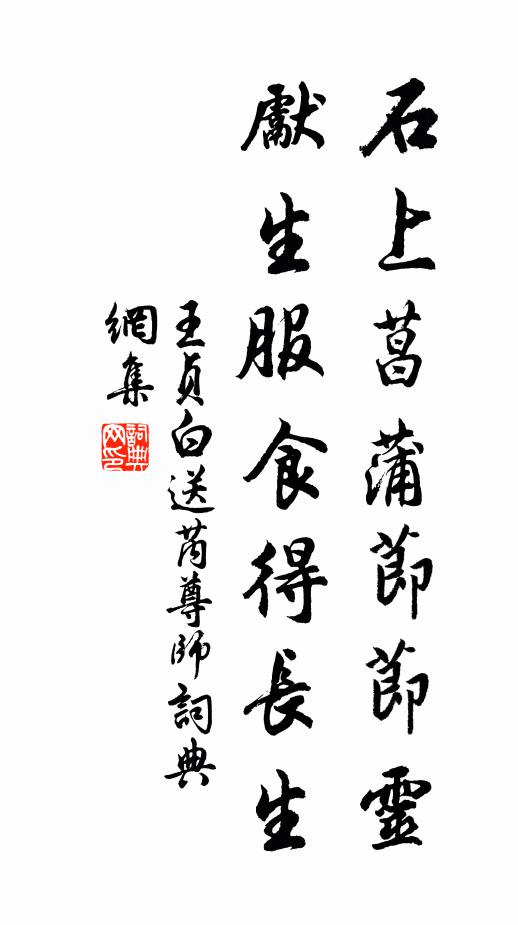 石上菖蒲節節靈
獻生服食得長生
王貞白送芮尊師詞典
網集
詞典网印